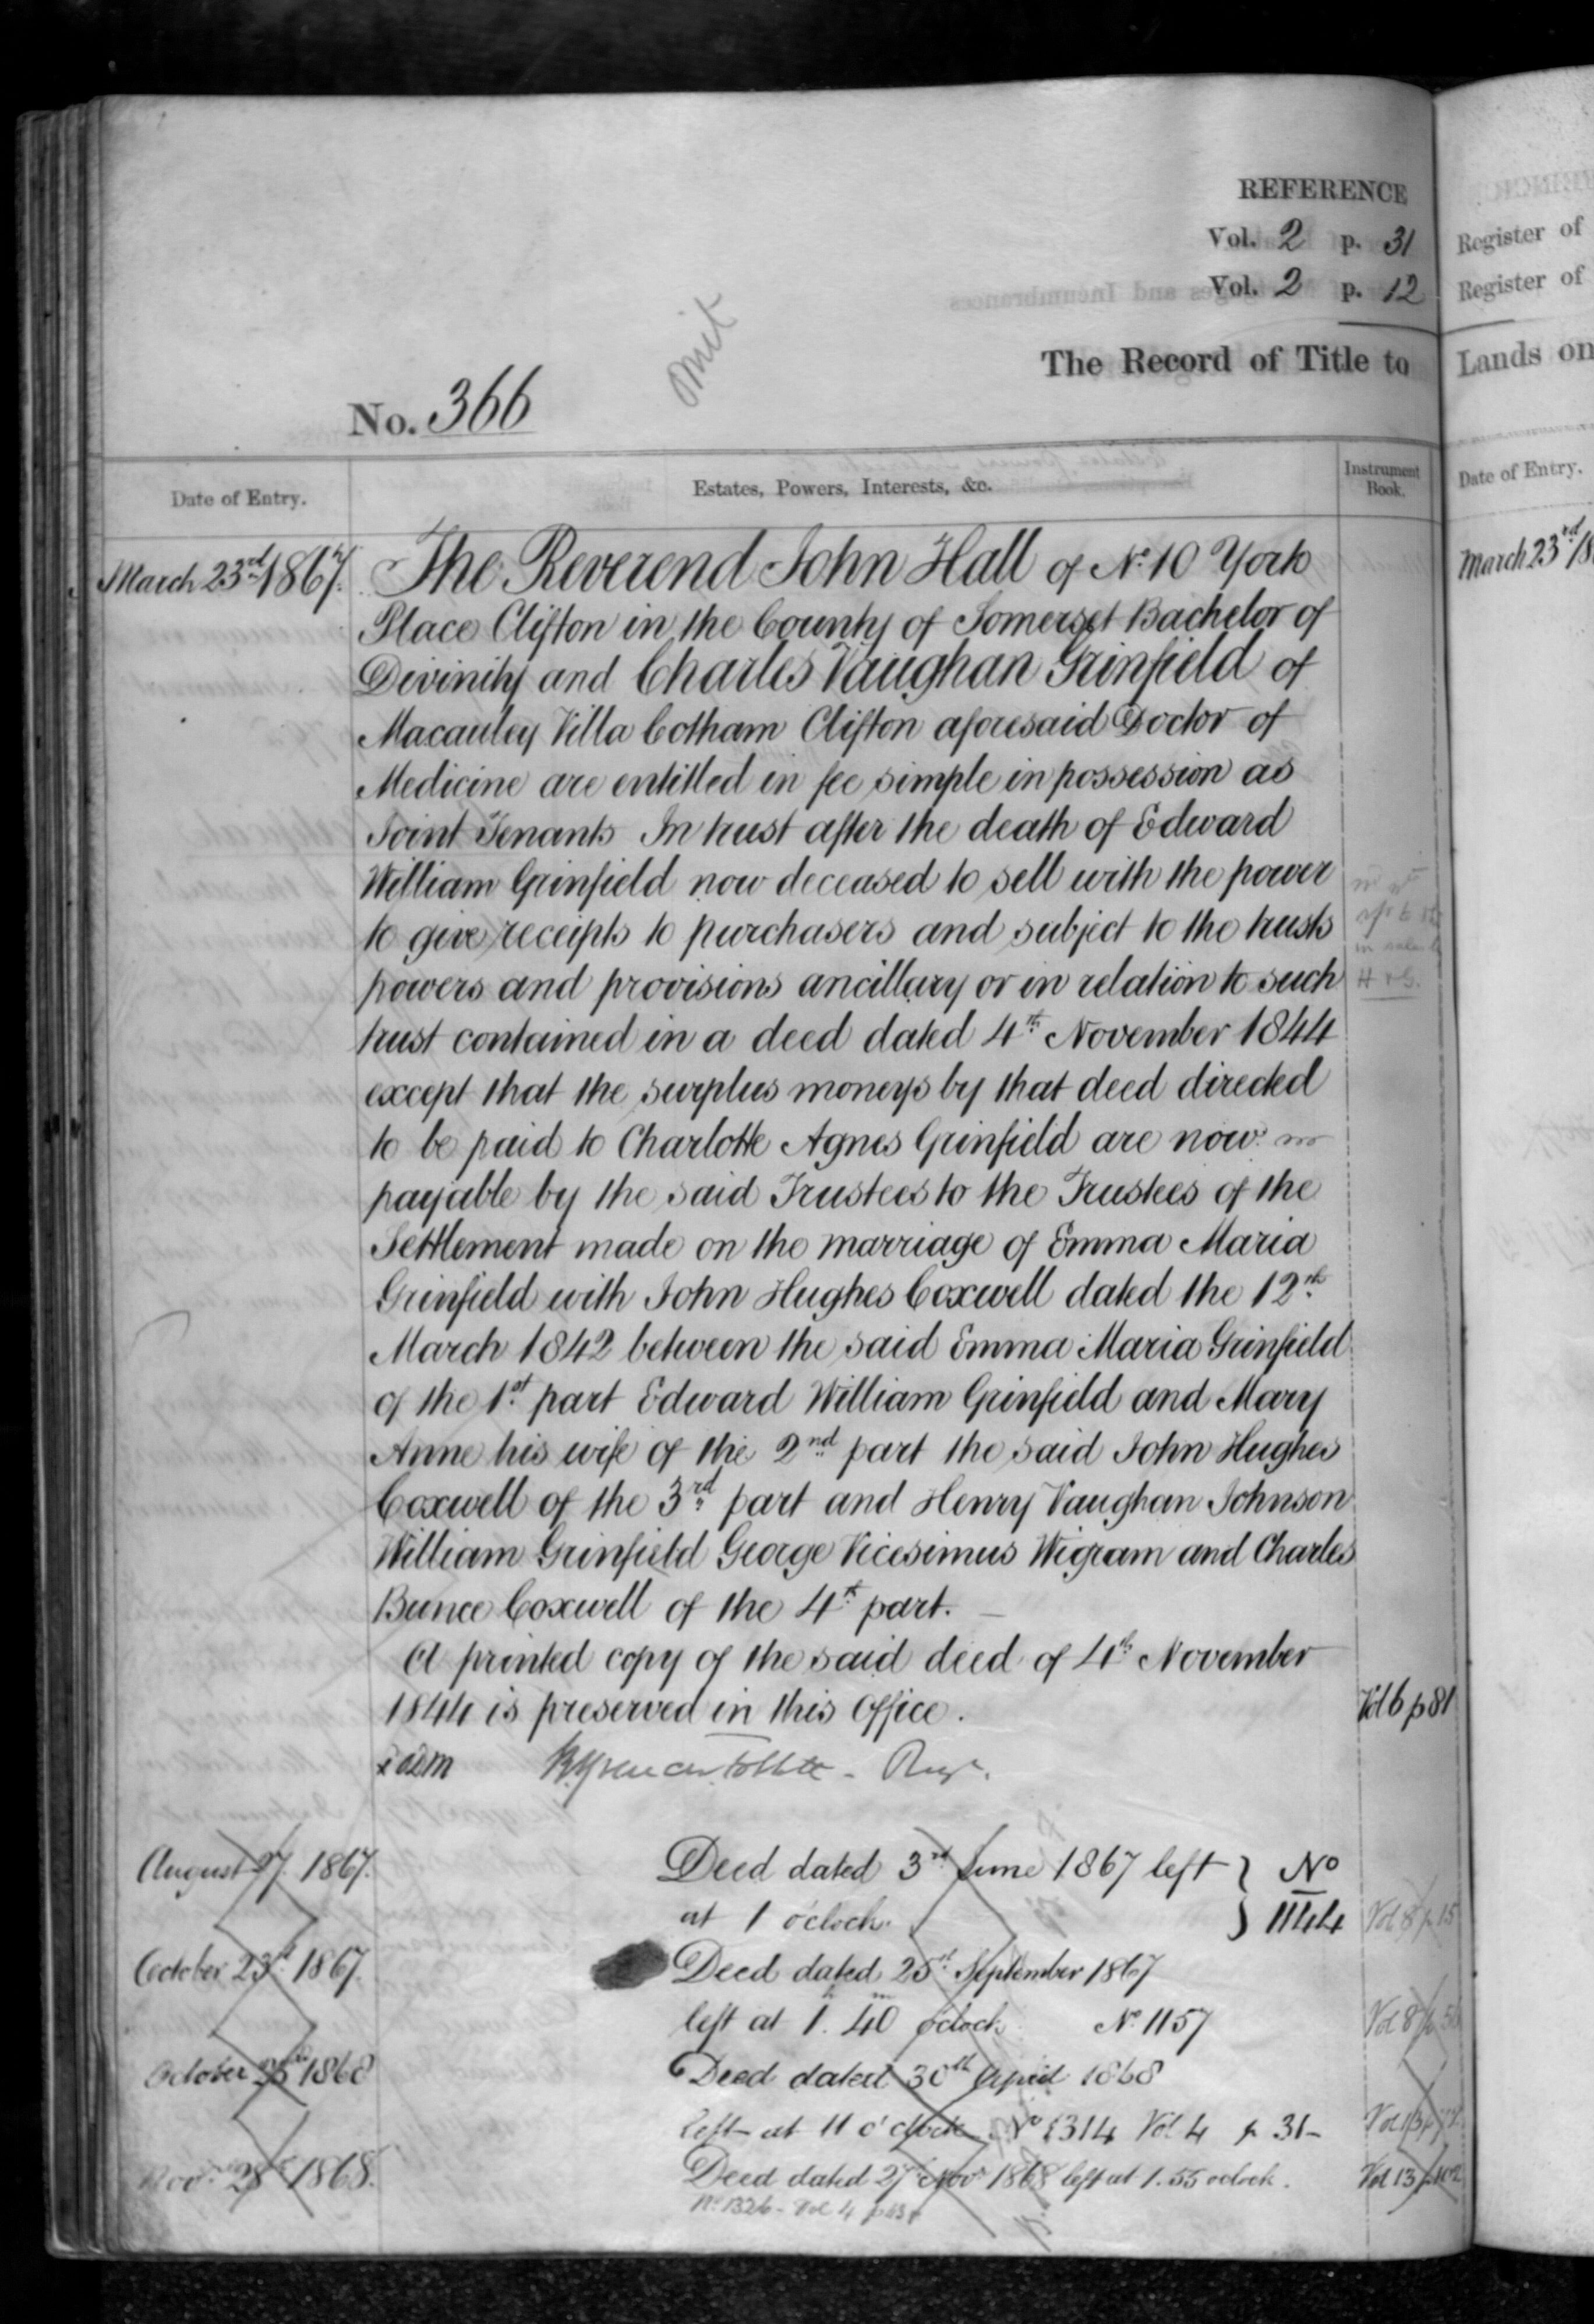 REFERENCE
Vol. 2 p. 31
Vol. 2 p. 12
Register of
Register of
omit
The Record of Title to
Lands on
No. 366
Date of Entry.
Estates, Powers, Interests, &c.
Instrument Book.
Date of Entry.
March 23rd 1867.
March 23rd 18
The Reverend John Hall of No. 10 York
Place Clifton in the County of Somerset Bachelor of
Divinity and Charles Vaughan Grinfield of
Macauley Villa Cotham Clifton aforesaid Doctor of
Medicine are entitled in fee simple in possession as
Joint Tenants In trust after the death of Edward
William Grinfield now deceased to sell with the power
to give receipts to purchasers and subject to the trusts
powers and provisions ancillary or in relation to such
trust contained in a deed dated 4th November 1844
except that the surplus moneys by that deed directed
to be paid to Charlotte Agnes Grinfield are now
payable by the said Trustees to the Trustees of the
Settlement made on the marriage of Emma Maria
Grinfield with John Hughes Coxwell dated the 12th
March 1842 between the said Emma Maria Grinfield
of the 1st part Edward William Grinfield and Mary
Anne his wife of the 2nd part the said John Hughes
Coxwell of the 3rd part and Henry Vaughan Johnson
William Grinfield George Vicesimus Wigram and Charles
Bunce Coxwell of the 4th part.
A printed copy of the said deed of 4th November
1844 is preserved in this Office.
Vol 6 p 81
August 27. 1867.
Deed dated 3rd June 1867 left } No
at 1 o'clock. } 1144
Vol 8 p 15
October 23d 1867
Deed dated 25th September 1867
left at 1. 40 o'clock No. 1157
Vol 8 p
October 1868
Deed dated 30th April 1868
left at 11 o'clock No 1314 Vol 4 p 31
Nov. 28 1868.
Deed dated 27 Nov 1868 left at 1.55 oclock.
Vol 13 p 102
No. 1326 - Vol 4 p